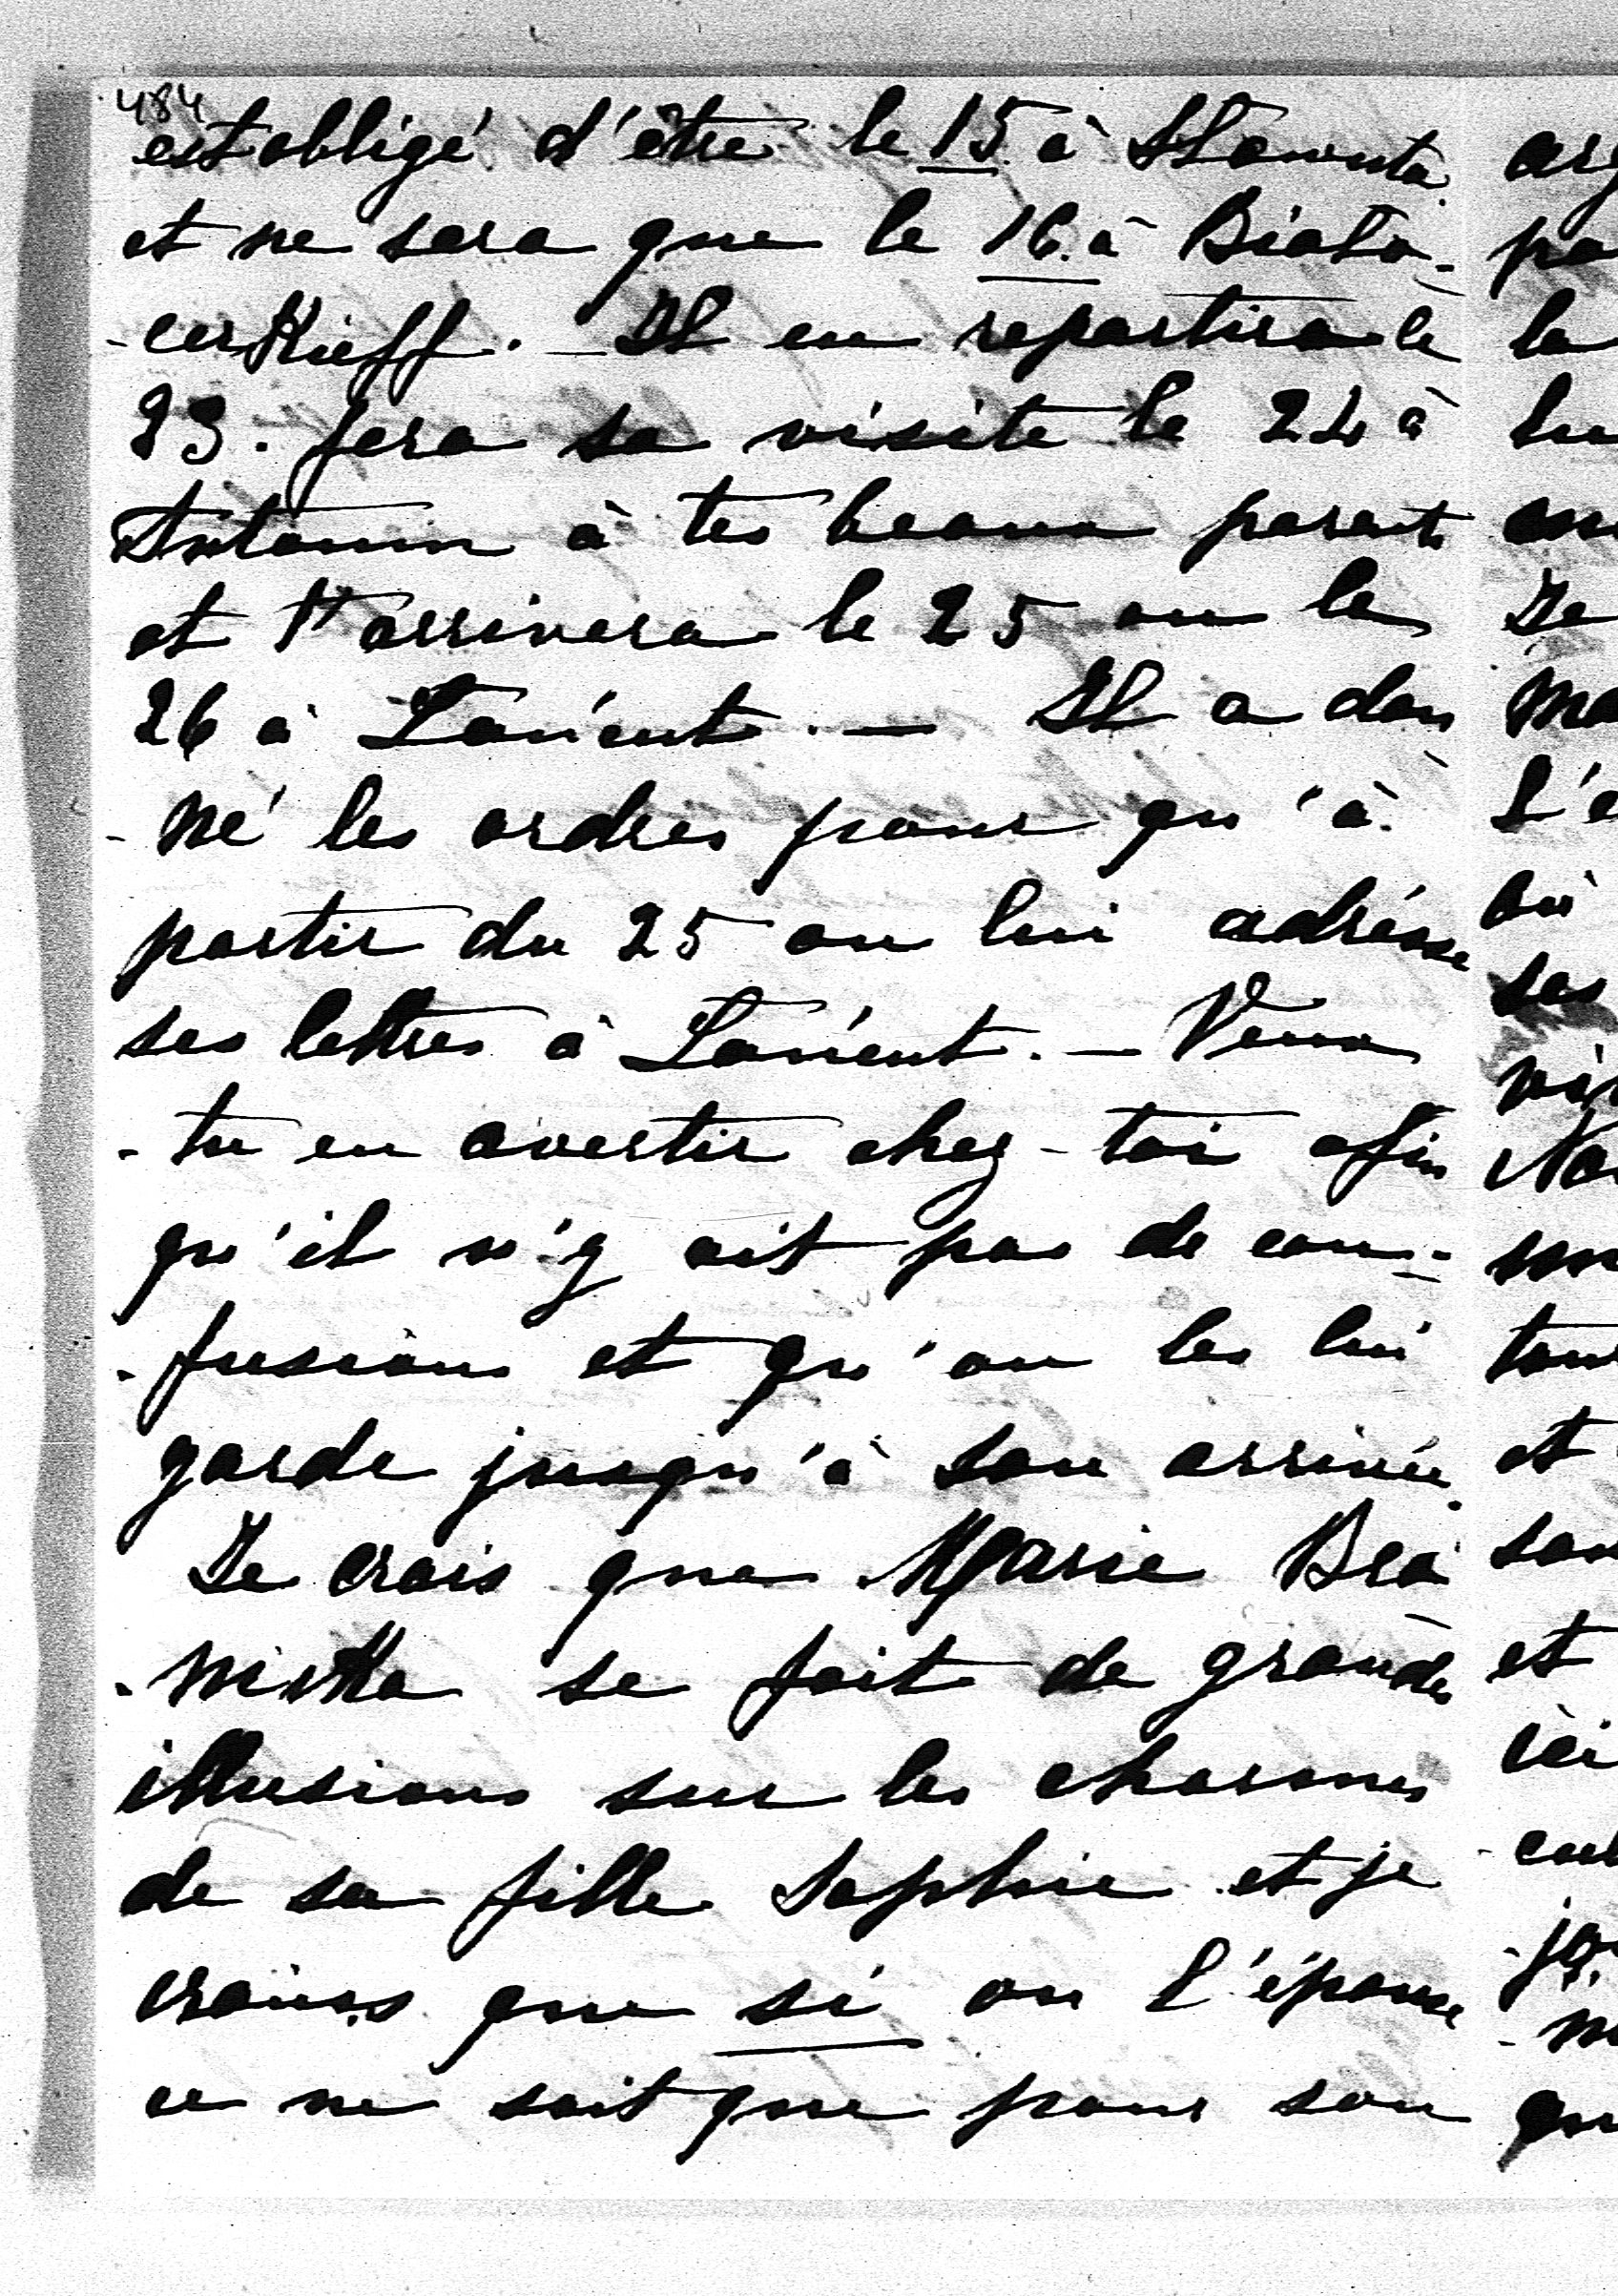 484
est obligé d'être le 15 à Slawuta
et ne sera que le 16 à Biała-
-cerkieff. — Il en repartira le
23. fera sa visite le 24 à
Antonin à tes beaux parents
et t'arrivera le 25 ou le
26 à Łańcut. — Il a don
-né les ordres pour qu'à
partir du 25 on lui adrésse
ses lettres à Łańcut. — Veux
-tu en avertir chez-toi afin
qu'il n'y ait pas de con-
-fusions et qu'on les lui
garde jusqu'à son arrivée.
Je crois que Marie Bra
-nicka se fait de grandes
illusions sur les charmes
de sa fille Sophie et je
crains que si on l'épouse
ce ne soit que pour son